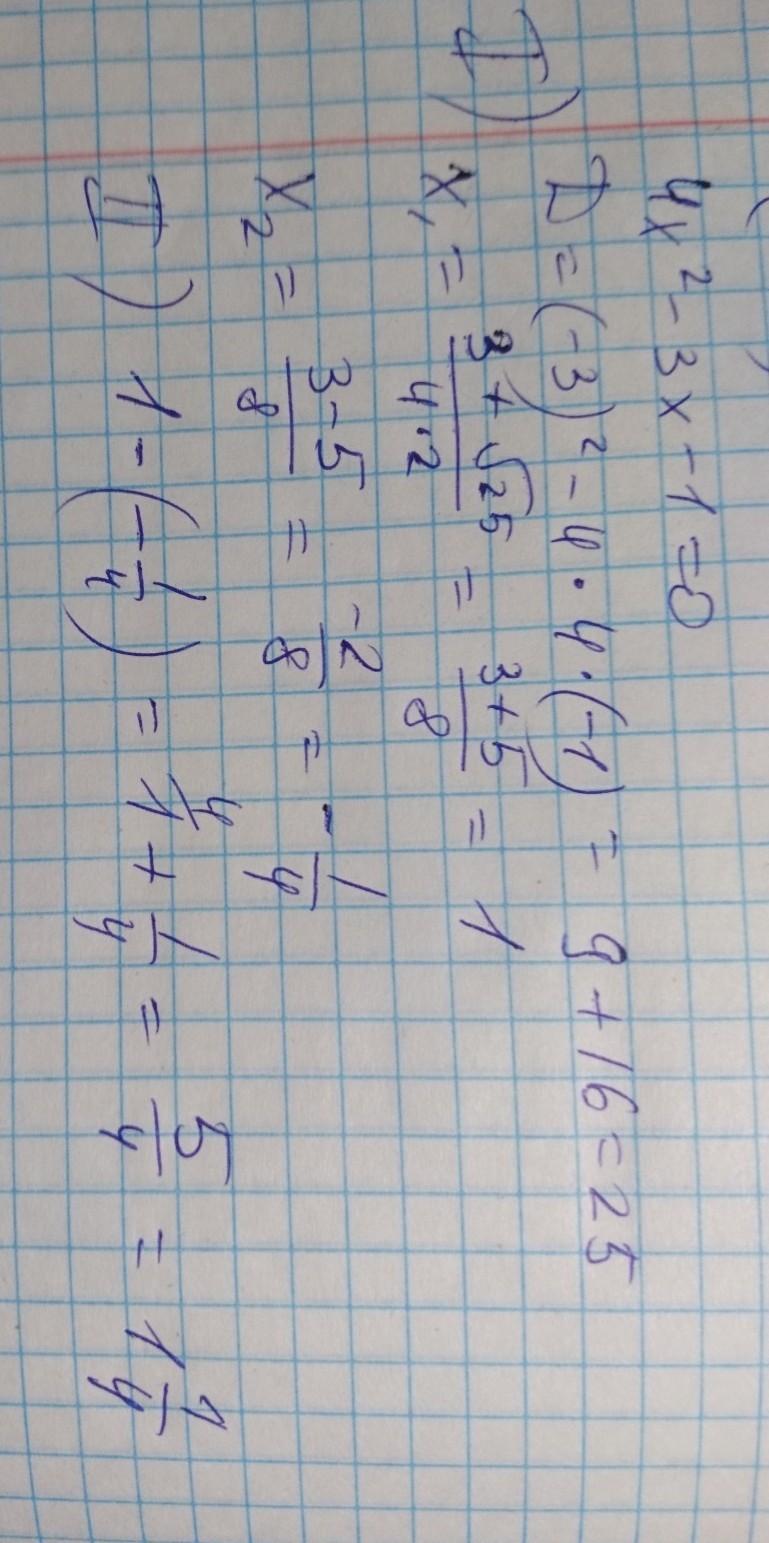 4x² - 3x - 1 = 0
I) D = (-3)² - 4 · 4 · (-1) = 9 + 16 = 25
x₁ = (3 + √25)/(4 · 2) = (3 + 5)/8 = 1
x₂ = (3 - 5)/8 = -2/8 = -1/4
II) 1 - (-1/4) = 1/4 + 1/4 = 5/4 = 1 1/4